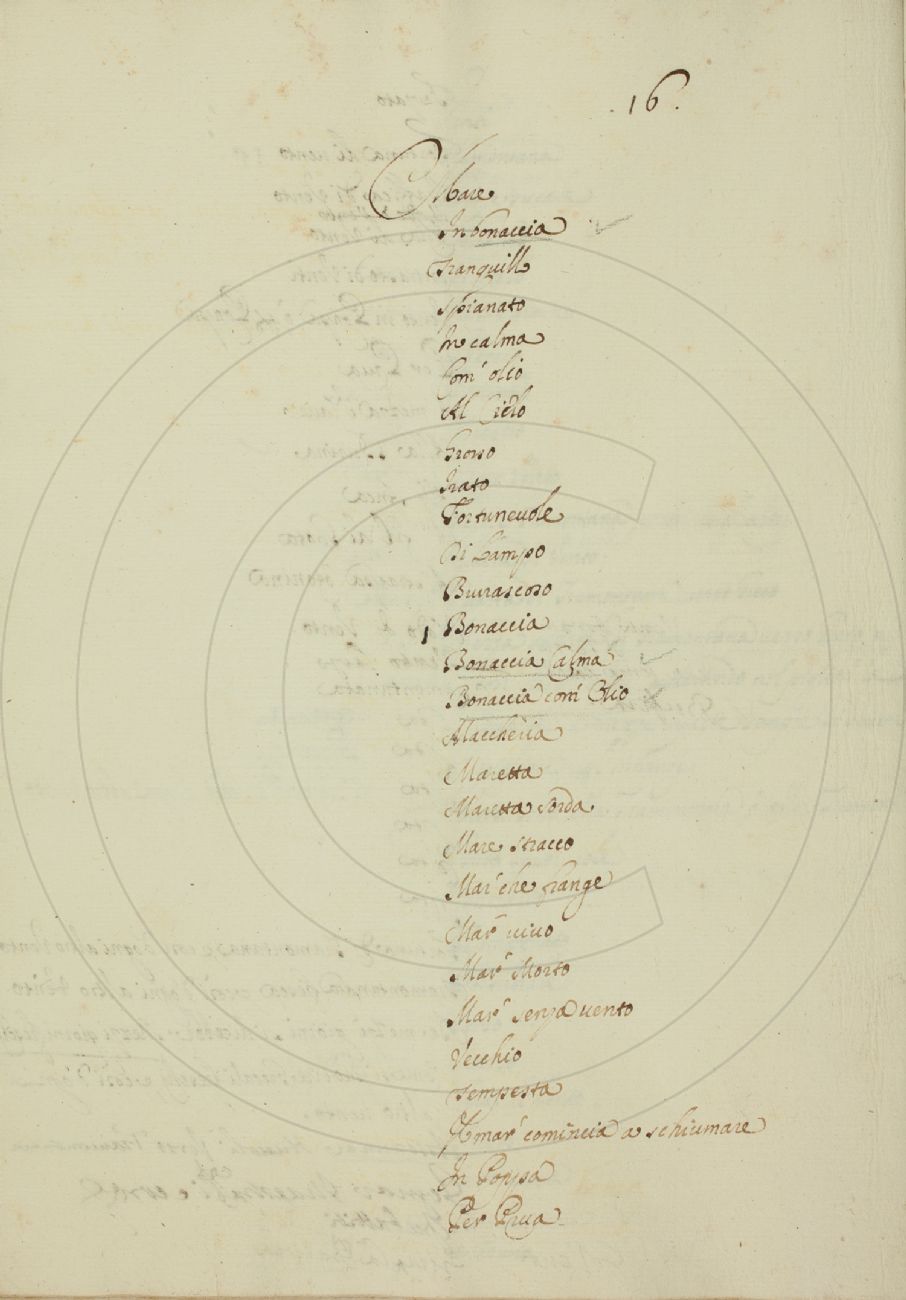 .16.
Mare
In bonaccia
Tranquill
Spianato
In calma
Com' olio
Al Cielo
Grosso
Irato
Fortunevole
Di Lampo
Burrascoso
1 Bonaccia
Bonaccia Calma
Bonaccia com' Olio
Maccheria
Maretta
Maretta sorda.
Mare stracco
Mar' che frange
Mar' vivo
Mar' Morto
Mar' senza vento
Vecchio
Tempesta
mar' comincia a schiumare
In Poppa
Per Prua